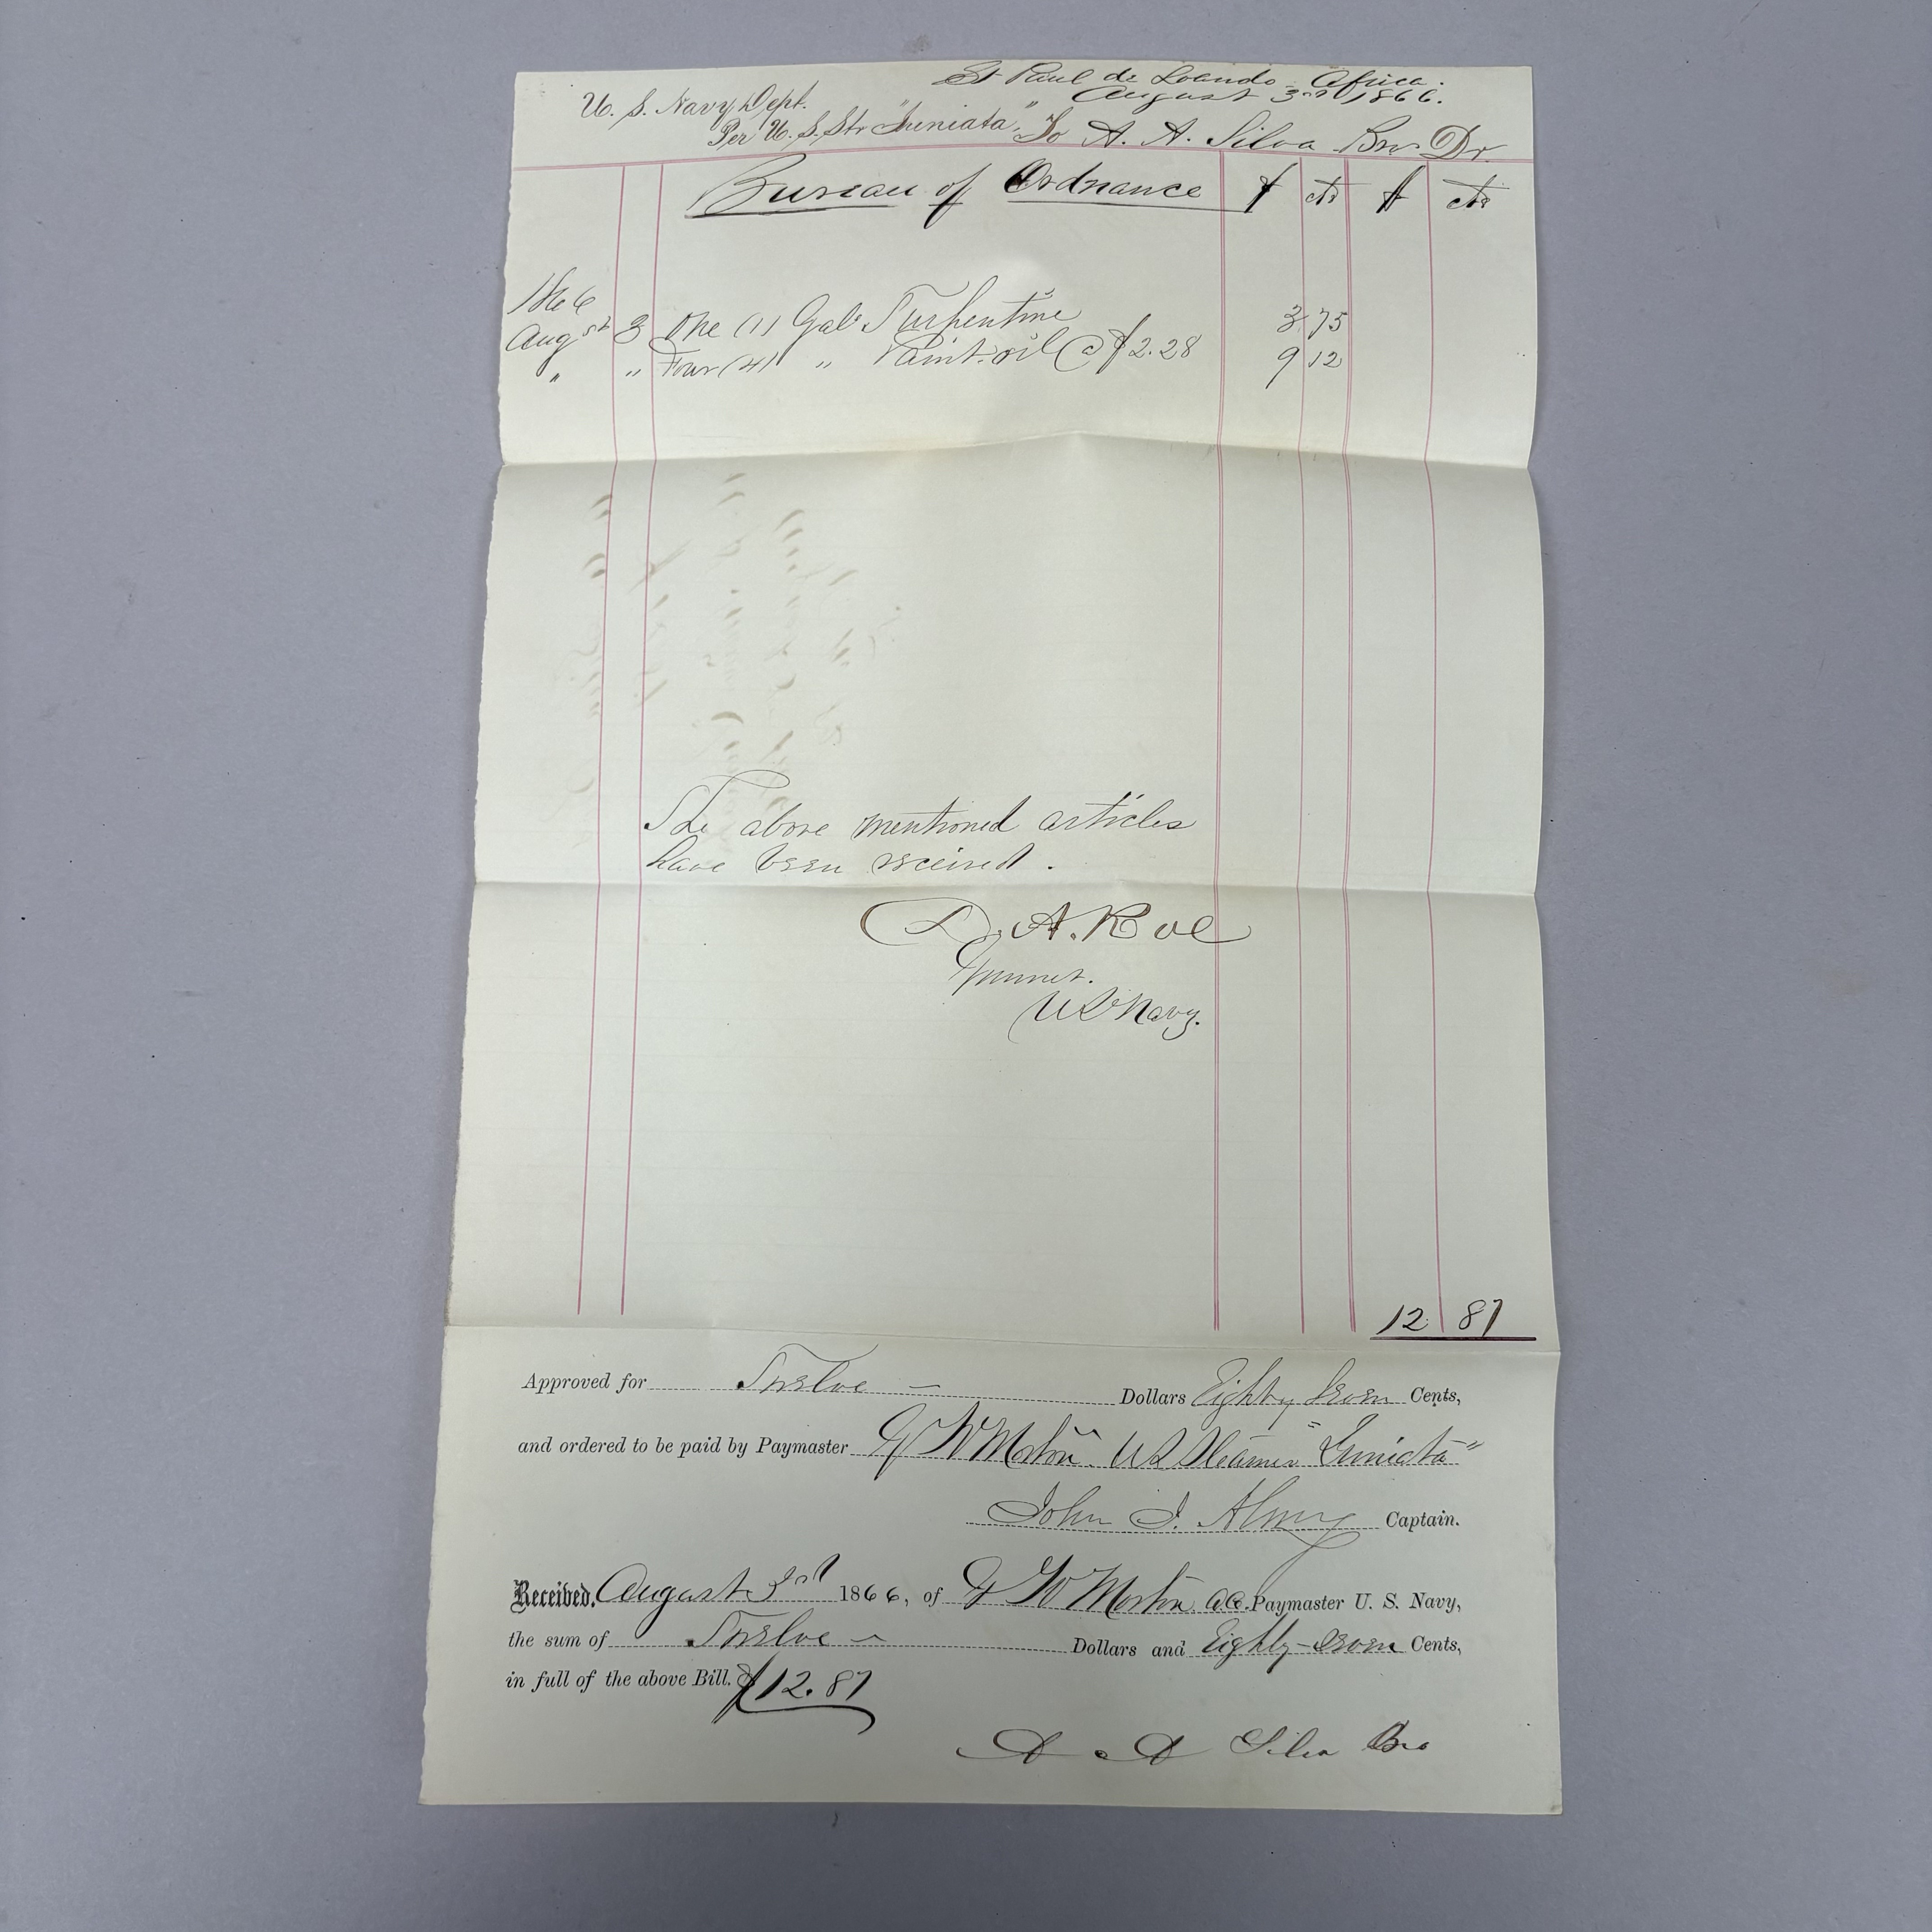 St Paul de Loando - Africa.
August 3rd 1866.
U. S. Navy Dept.
Per U. S. Str "Juniata," To A. A. Silva Bro Dr
Bureau of Ordnance $ cts $ cts
1866
Augst 3 One (1) Gal. Turpentine 3 75
" " Four (4) " Paint oil @ $2.28 9 12
The above mentioned articles
have been received.
D. A. Roe
Gunner.
US Navy.
12 87
Approved for Twelve — Dollars Eighty Seven Cents,
and ordered to be paid by Paymaster G W Morton. US Steamer "Juniata"
John J. Almy Captain.
Received, August 3rd 1866, of G W Morton a a. Paymaster U. S. Navy,
the sum of Twelve — Dollars and Eighty-Seven Cents,
in full of the above Bill. $12.87
A. A Silva Bro